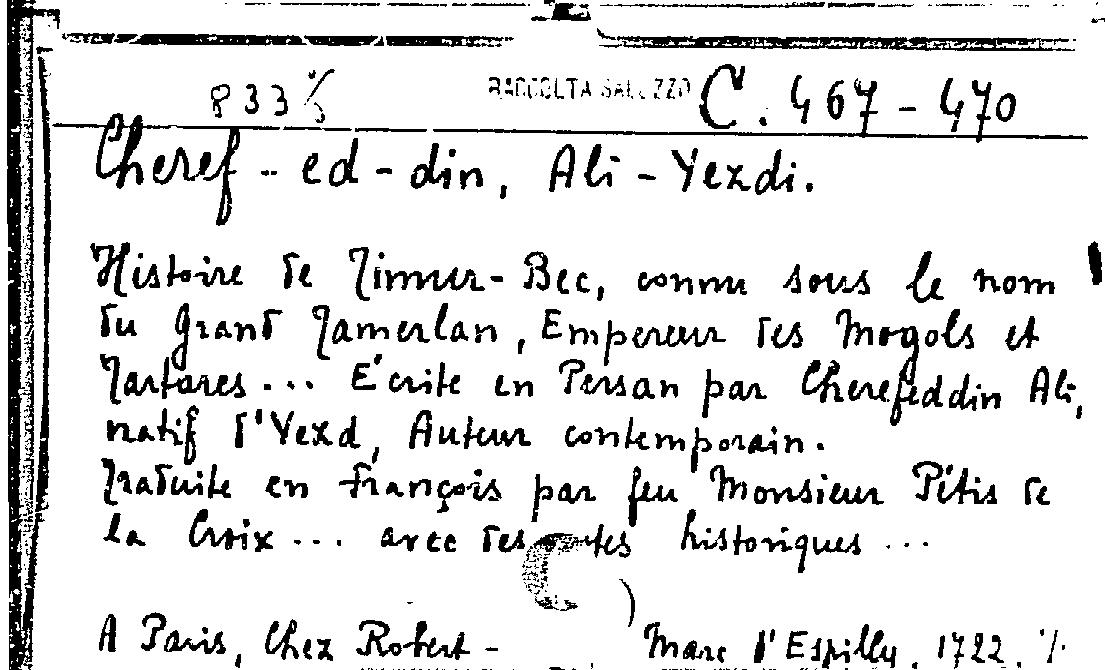 833 RACCOLTA SALUZZO C. 467 - 470
Cheref - ed - din, Ali - Yezdi.
Histoire de Timur - Bec, connu sous le nom
du Grand Tamerlan, Empereur des Mogols et
Tartares ... Écrite en Persan par Cherefeddin Ali,
natif d'Yezd, Auteur contemporain.
Traduite en François par feu Monsieur Pétis de
la Croix ... avec des notes historiques ...
A Paris, Chez Robert - Marc d'Espilly, 1722. ·/.